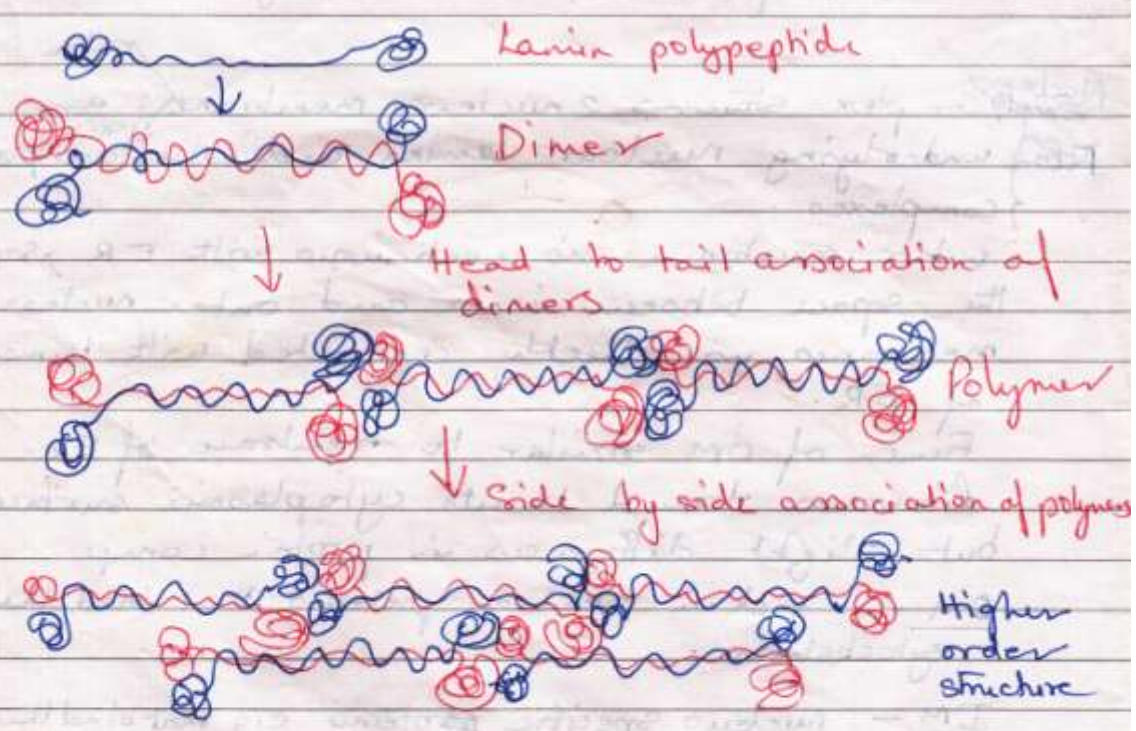 Lamin polypeptide
Dimer
Head to tail association of
dimers
Polymer
Side by side association of polymers
Higher
order
structure